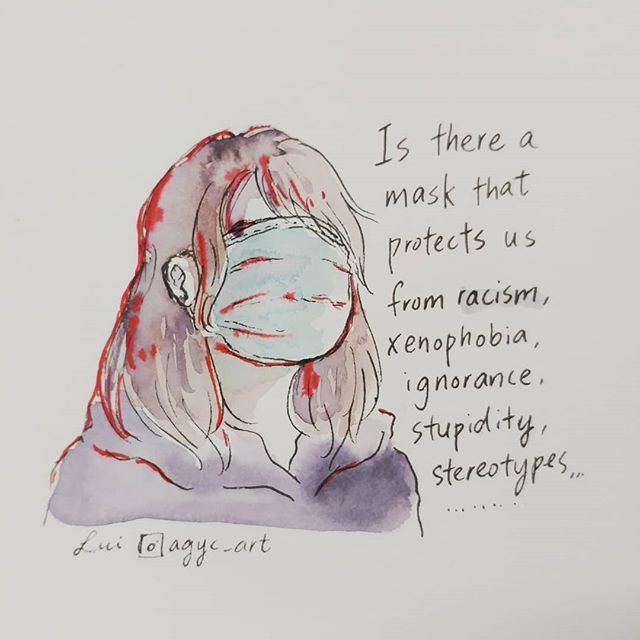 Is there a
mask that
protects us
from racism,
xenophobia,
ignorance,
stupidity,
stereotypes...
.........
Lui agyc_art